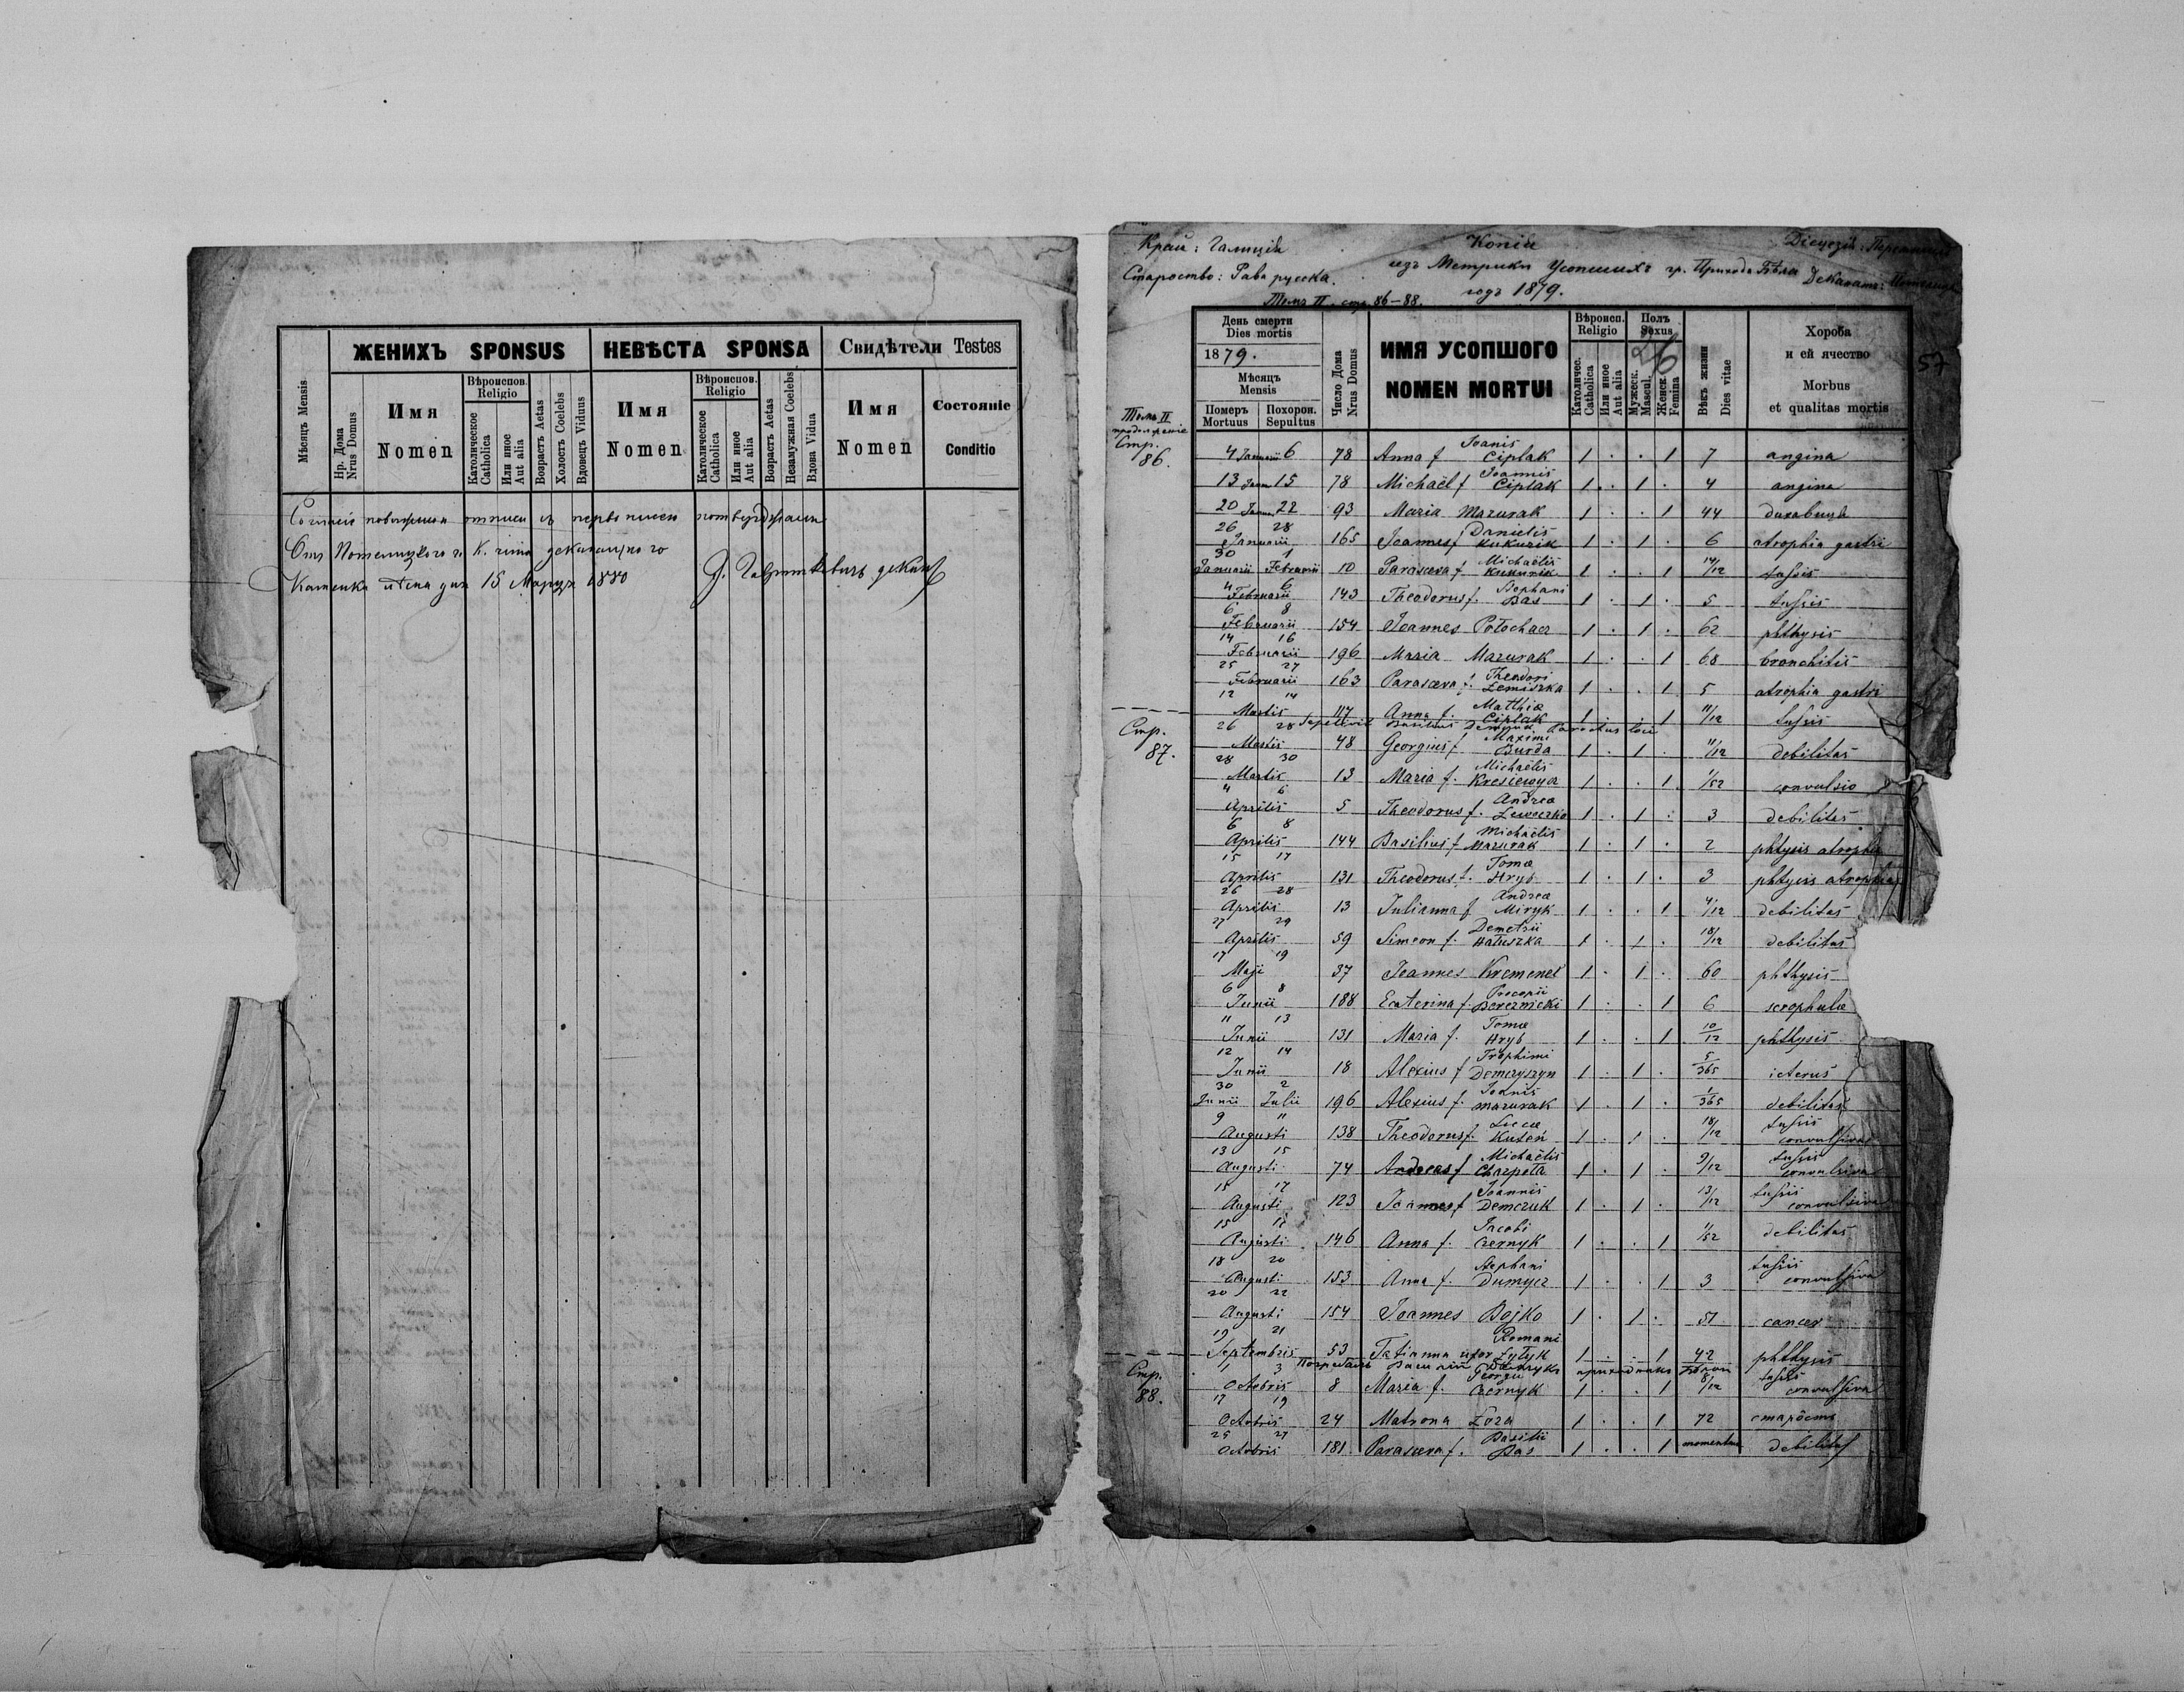 ЖЕНИХЪ SPONSUS НЕВѢСТА SPONSA Свидѣтели Testes
Мѣсяцъ Mensis
Нр. Дома Nrus Domus
Имя Nomen
Вѣроиспов. Religio
Католическое Catholica
Или иное Aut alia
Возрастъ Aetas
Холостъ Coelebs
Вдовецъ Viduus
Имя Nomen
Вѣроиспов. Religio
Католическое Catholica
Или иное Aut alia
Возрастъ Aetas
Незамужная Coelebs
Вдова Vidua
Имя Nomen
Состояніе Conditio
Каменка дня 15 Марця 1880
Край: Галиція
Копія
Староство: Рава русска.
изъ Метрики Усопшихъ гр. Прихода Бѣла
годъ 1879.
Томъ II. стр. 86–88.
57
26
День смерти Dies mortis
1879.
Мѣсяцъ Mensis
Померъ Mortuus
Похорон. Sepultus
Число Дома Nrus Domus
ИМЯ УСОПШОГО
NOMEN MORTUI
Вѣроисп. Religio
Католичес. Catholica
Или иное Aut alia
Полъ Sexus
Мужеск. Mascul.
Женск. Femina
Вѣкъ жизни Dies vitae
Хороба и ей ячество
Morbus et qualitas mortis
Томъ II
Стр. 86.
4 Januarii 6 78 Anna f. Joanis Ciplak 1 . . 1 7 angina
13 Januar 15 78 Michaël f. Joannis Ciplak 1 . 1 . 4 angina
20 Januar 22 93 Maria Mazurak 1 . . 1 44
26 28 Januarii 165 Joannes f. Danielis Kukurik 1 . 1 . 6 atrophia gastri
30 Januarii 1 Februarii 10 Parasceva f. Michaëlis Kukurik 1 . . 1 14/12 tussis
4 6 Februarii 143 Theodorus f. Stephani Bas 1 . 1 . 5 tussis
6 8 Februarii 154 Joannes Potochacz 1 . 1 . 62 phthysis
14 16 Februarii 196 Maria Mazurak 1 . . 1 68 bronchitis
25 27 Februarii 163 Parasceva f. Theodori Lemiszka 1 . . 1 5 atrophia gastri
12 14 Martis 117 Anna f. Matthiæ Ciplak 1 . . 1 11/12 tussis
Стр. 87.
Sepelivit Basilius Parochus loci
26 28 Martis 48 Georgius f. Maximi Burda 1 . 1 . 11/12 debilitas
28 30 Martis 13 Maria f. Michaëlis 1 . . 1 1/52 convulsio
4 6 Aprilis 5 Theodorus f. Andrea Leweczko 1 . 1 . 3 debilitas
6 8 Aprilis 144 Basilius f. Michaëlis Mazurak 1 . 1 . 2 phtysis atrophia
15 17 Aprilis 131 Theodorus f. Tomæ Hryb 1 . 1 . 3 phtysis atrophia
26 28 Aprilis 13 Julianna f. Andrea Miryk 1 . . 1 4/12 debilitas
27 29 Aprilis 59 Simeon f. Demetrii Hatuszka 1 . 1 . 18/12 debilitas
17 19 Maji 37 Joannes Kremenet 1 . 1 . 60 phthysis
6 8 Junii 188 Ecaterina f. Procopii Bereznicki 1 . . 1 6 scrophulæ
11 13 Junii 131 Maria f. Tomæ Hryb 1 . . 1 10/12 phthysis
12 14 Junii 18 Alexius f. Trophimi Demczyszyn 1 . 1 . 5/365 icterus
30 Junii 2 Julii 196 Alexius f. Joanis Mazurak 1 . 1 . 1/365 debilitas
9 11 Augusti 138 Theodorus f. Lucæ Kuteń 1 . 1 . 18/12 tussis convulsiva
13 15 Augusti 74 Andreas f. Michaëlis Charpeta 1 . 1 . 9/12 tussis convulsiva
15 17 Augusti 123 Joannes f. Joannis Demczuk 1 . 1 . 13/12 tussis convulsiva
15 17 Augusti 146 Anna f. Jacobi Czernyk 1 . . 1 1/52 debilitas
18 20 Augusti 153 Anna f. Stephani Dumycz 1 . . 1 3 tussis convulsiva
20 22 Augusti 154 Joannes Bojko 1 . 1 . 51 cancer
19 21 Septembris 53 Tatianna uxor Romani Lytyk 1 . . 1 42 phthysis
Стр. 88.
1 3 Octobris 8 Maria f. Georgii Czernyk 1 . . 1 8/12 tussis convulsiva
17 19 Octobris 24 Matrona Loza 1 . . 1 72 старôсть
25 27 Octobris 181 Parasceva f. Basilii Bas 1 . . 1 momentum debilitas